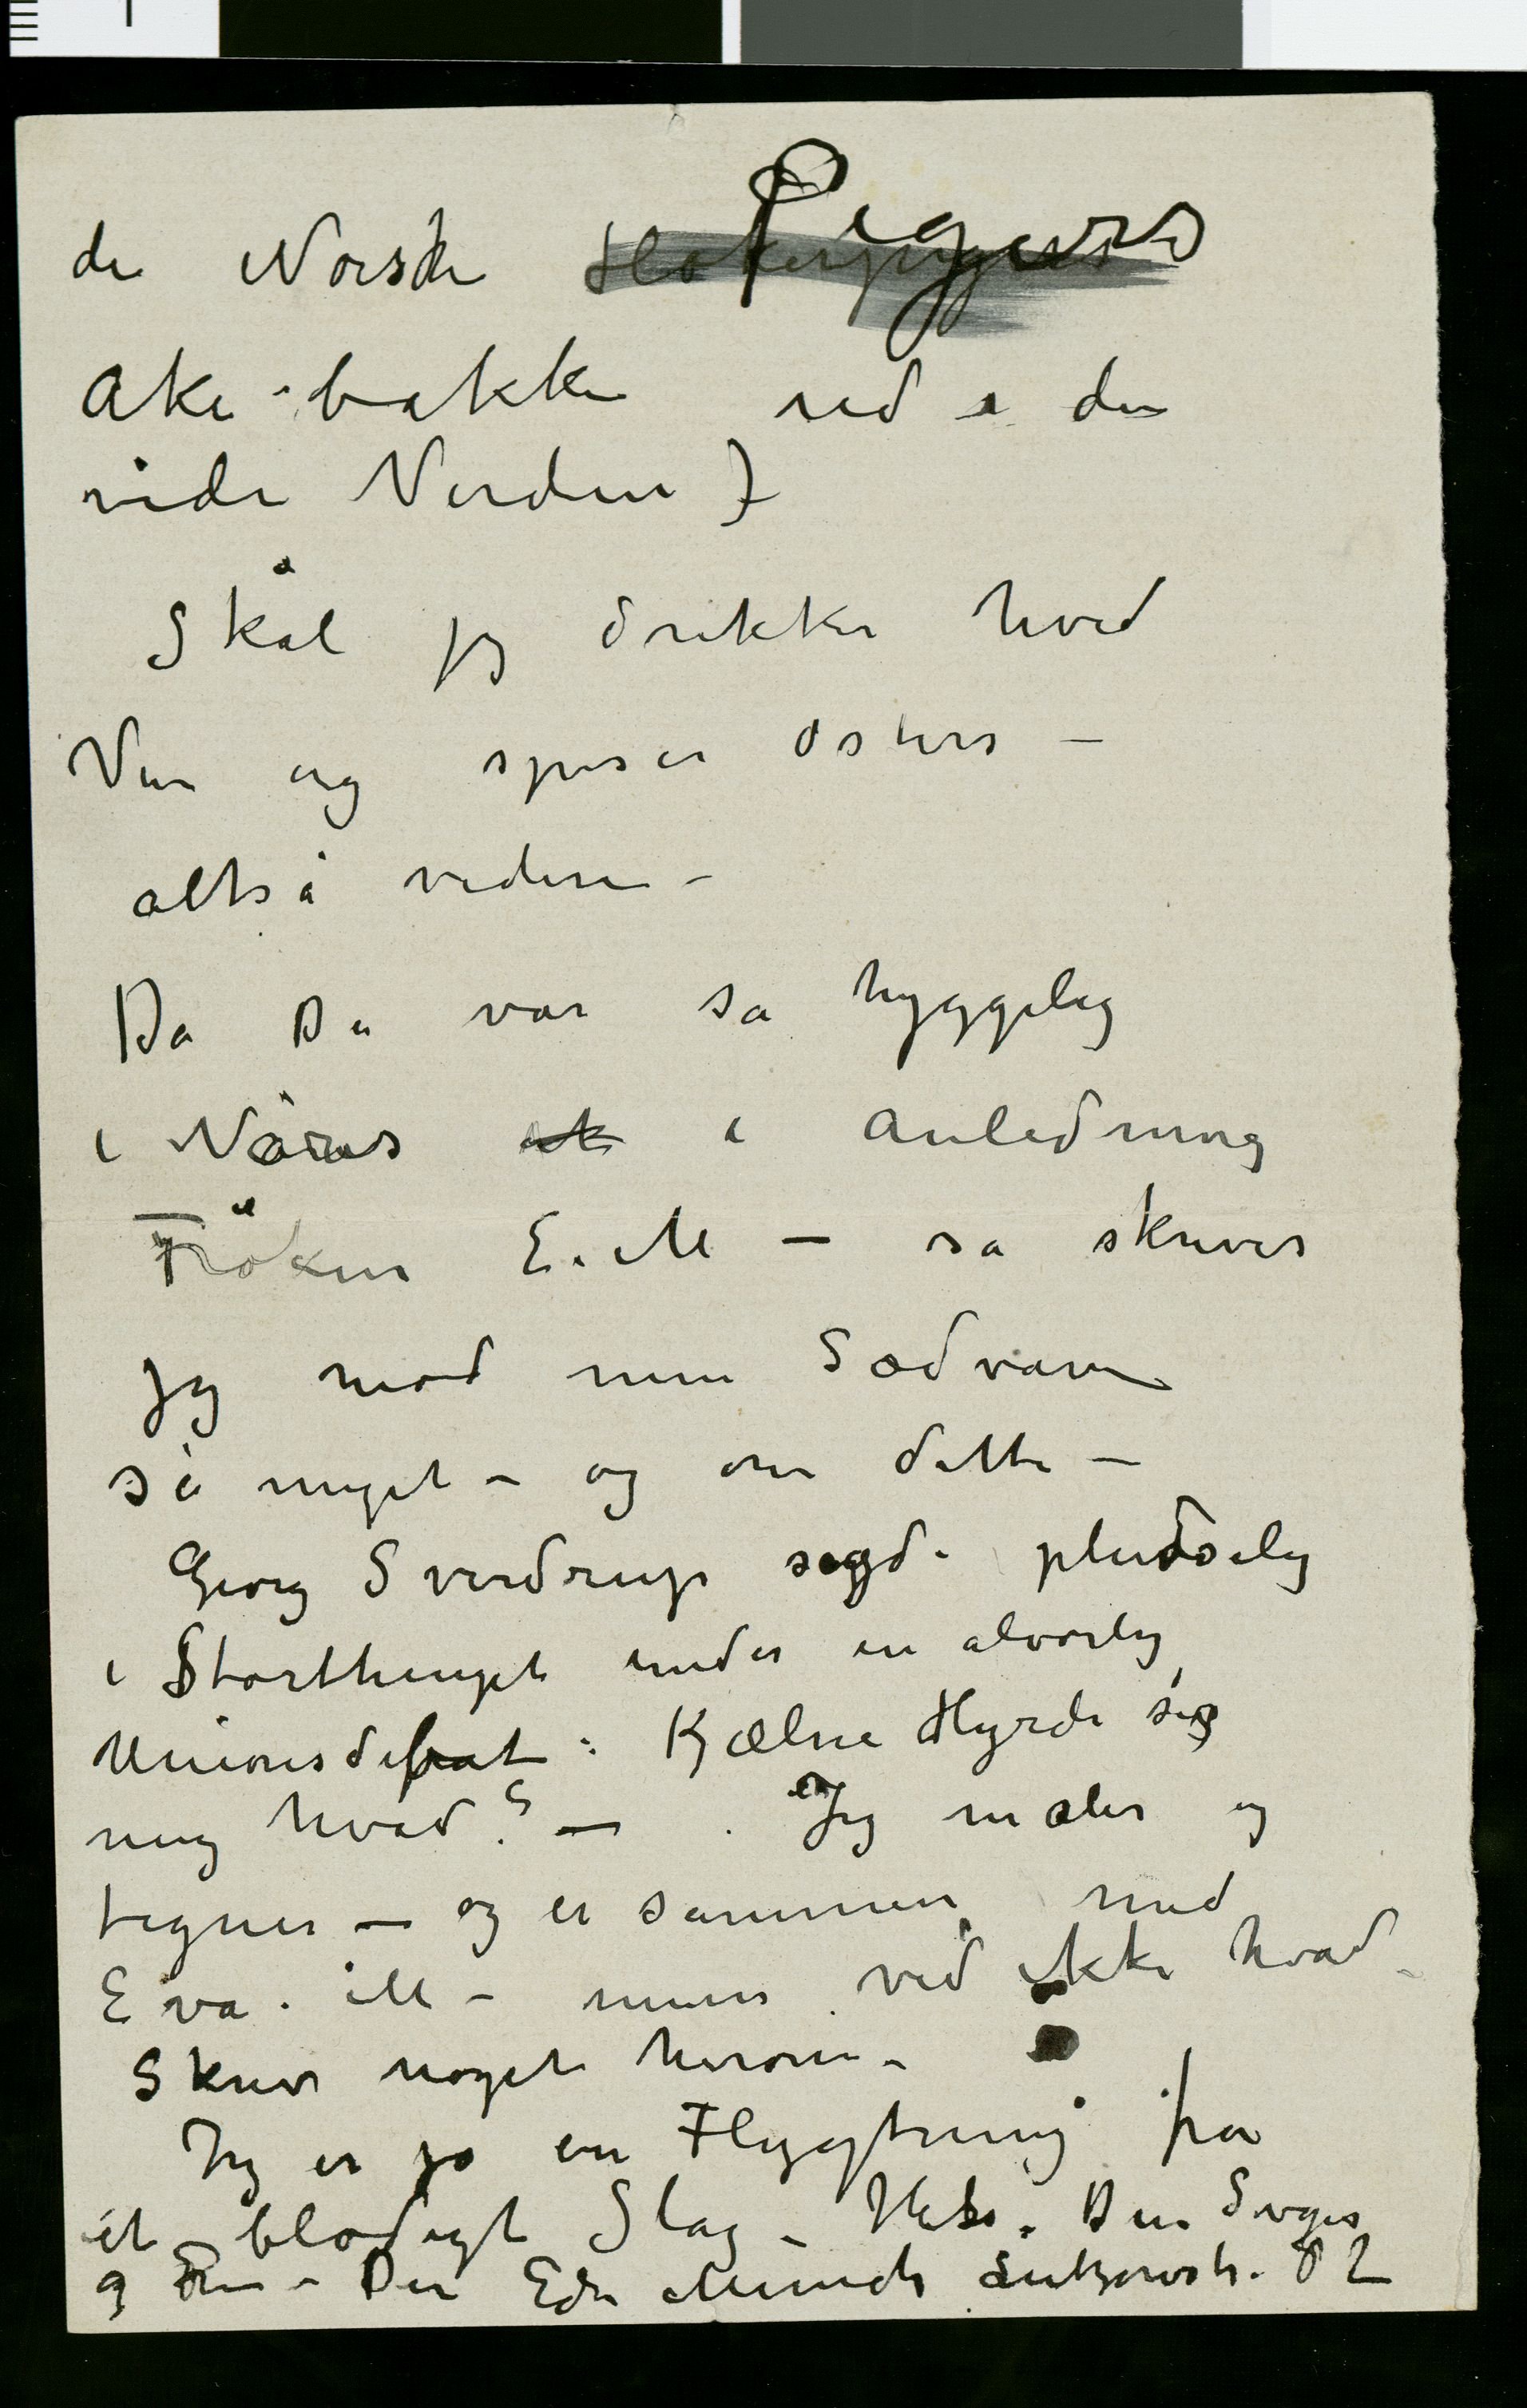 de Norske Pigers
Ake-bakke ned i den
vide Verden)
Skål jeg drikker hvid
Vin og spiser østers –
altså videre –
Da Du var så hyggelig
i Nörus i Anledning
Fröken E. M – så skriver
jeg mod min Sædvane
så meget – og om dette –
Georg Sverdrup sagde pludselig
i Storthinget under en alvorlig
Unionsdebat: Kjælne Hyrde sig
mig hvad? – Jeg maler og
tegner – og er sammen med
Eva. M – men ved ikke hvad –
Skriv noget herom –
Jeg er jo en Flygtning fra
et blodigt Slag – Hils. Din Svoger
og Frue – Din Edv Munch Lützowstr. 82